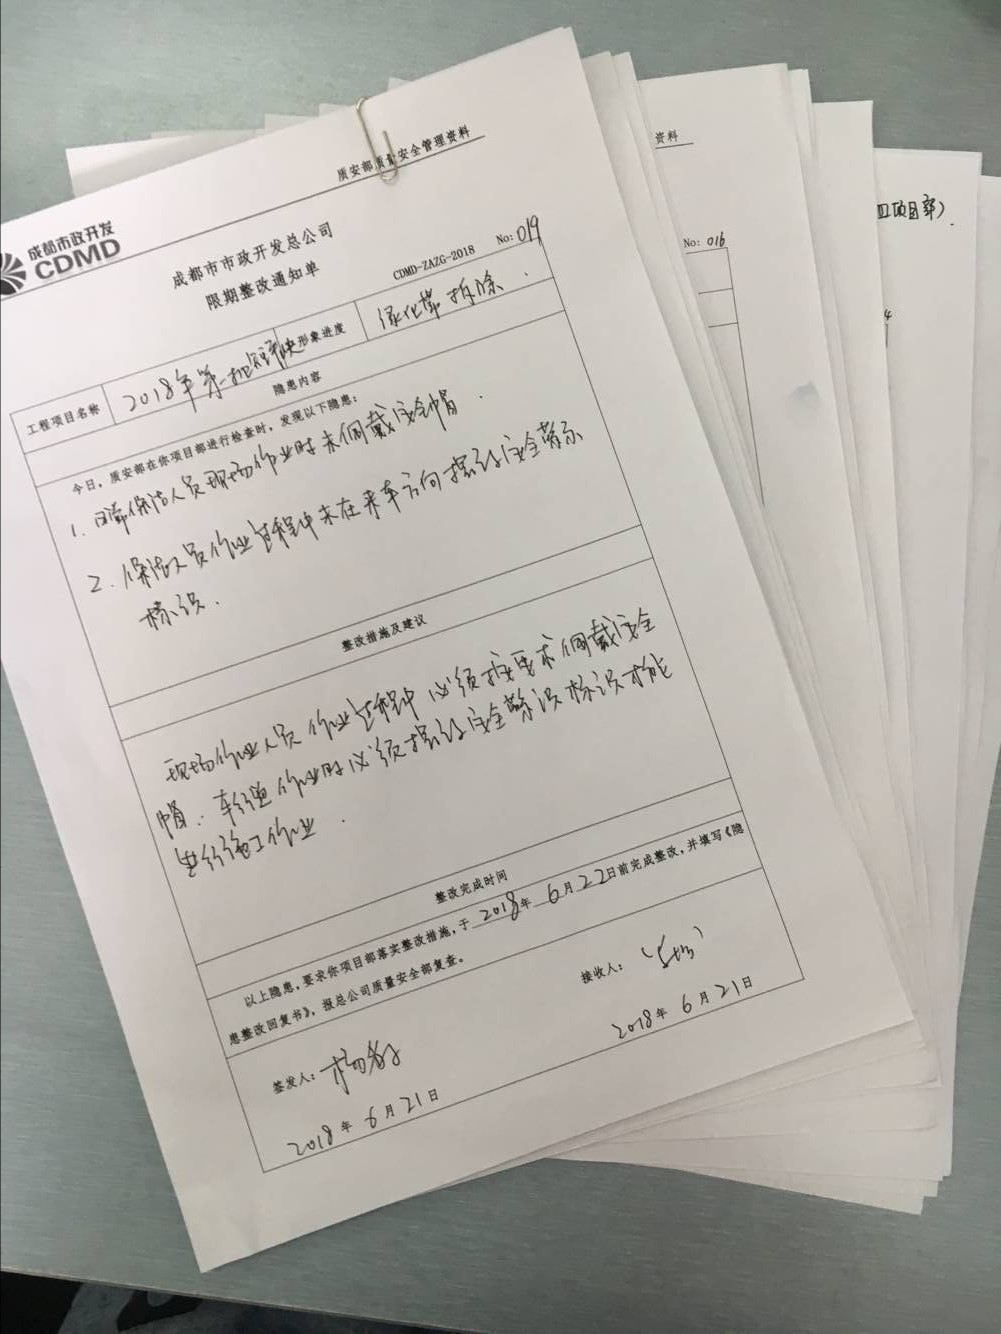 质安部质量安全管理资料
成都市政开发
CDMD
成都市市政开发总公司
限期整改通知单
CDMD-ZAZG-2018 No: 019
工程项目名称 2018年第一批 形象进度 绿化带拆除.
隐患内容
今日，质安部在你项目部进行检查时，发现以下隐患：
1. 日常保洁人员现场作业时未佩戴安全帽.
2. 保洁人员作业过程中未在来车方向摆设安全警示
标识.
整改措施及建议
现场作业人员作业过程中必须按要求佩戴安全
帽. 车行道作业时必须摆设安全警示标识才能
进行施工作业.
整改完成时间
以上隐患，要求你项目部落实整改措施，于 2018年 6月22日前完成整改，并填写《隐
患整改回复书》，报总公司质量安全部复查。
签发人： 杨
接收人：
2018年 6月21日
2018年 6月21日
资料
No: 016
四项目部）.
4